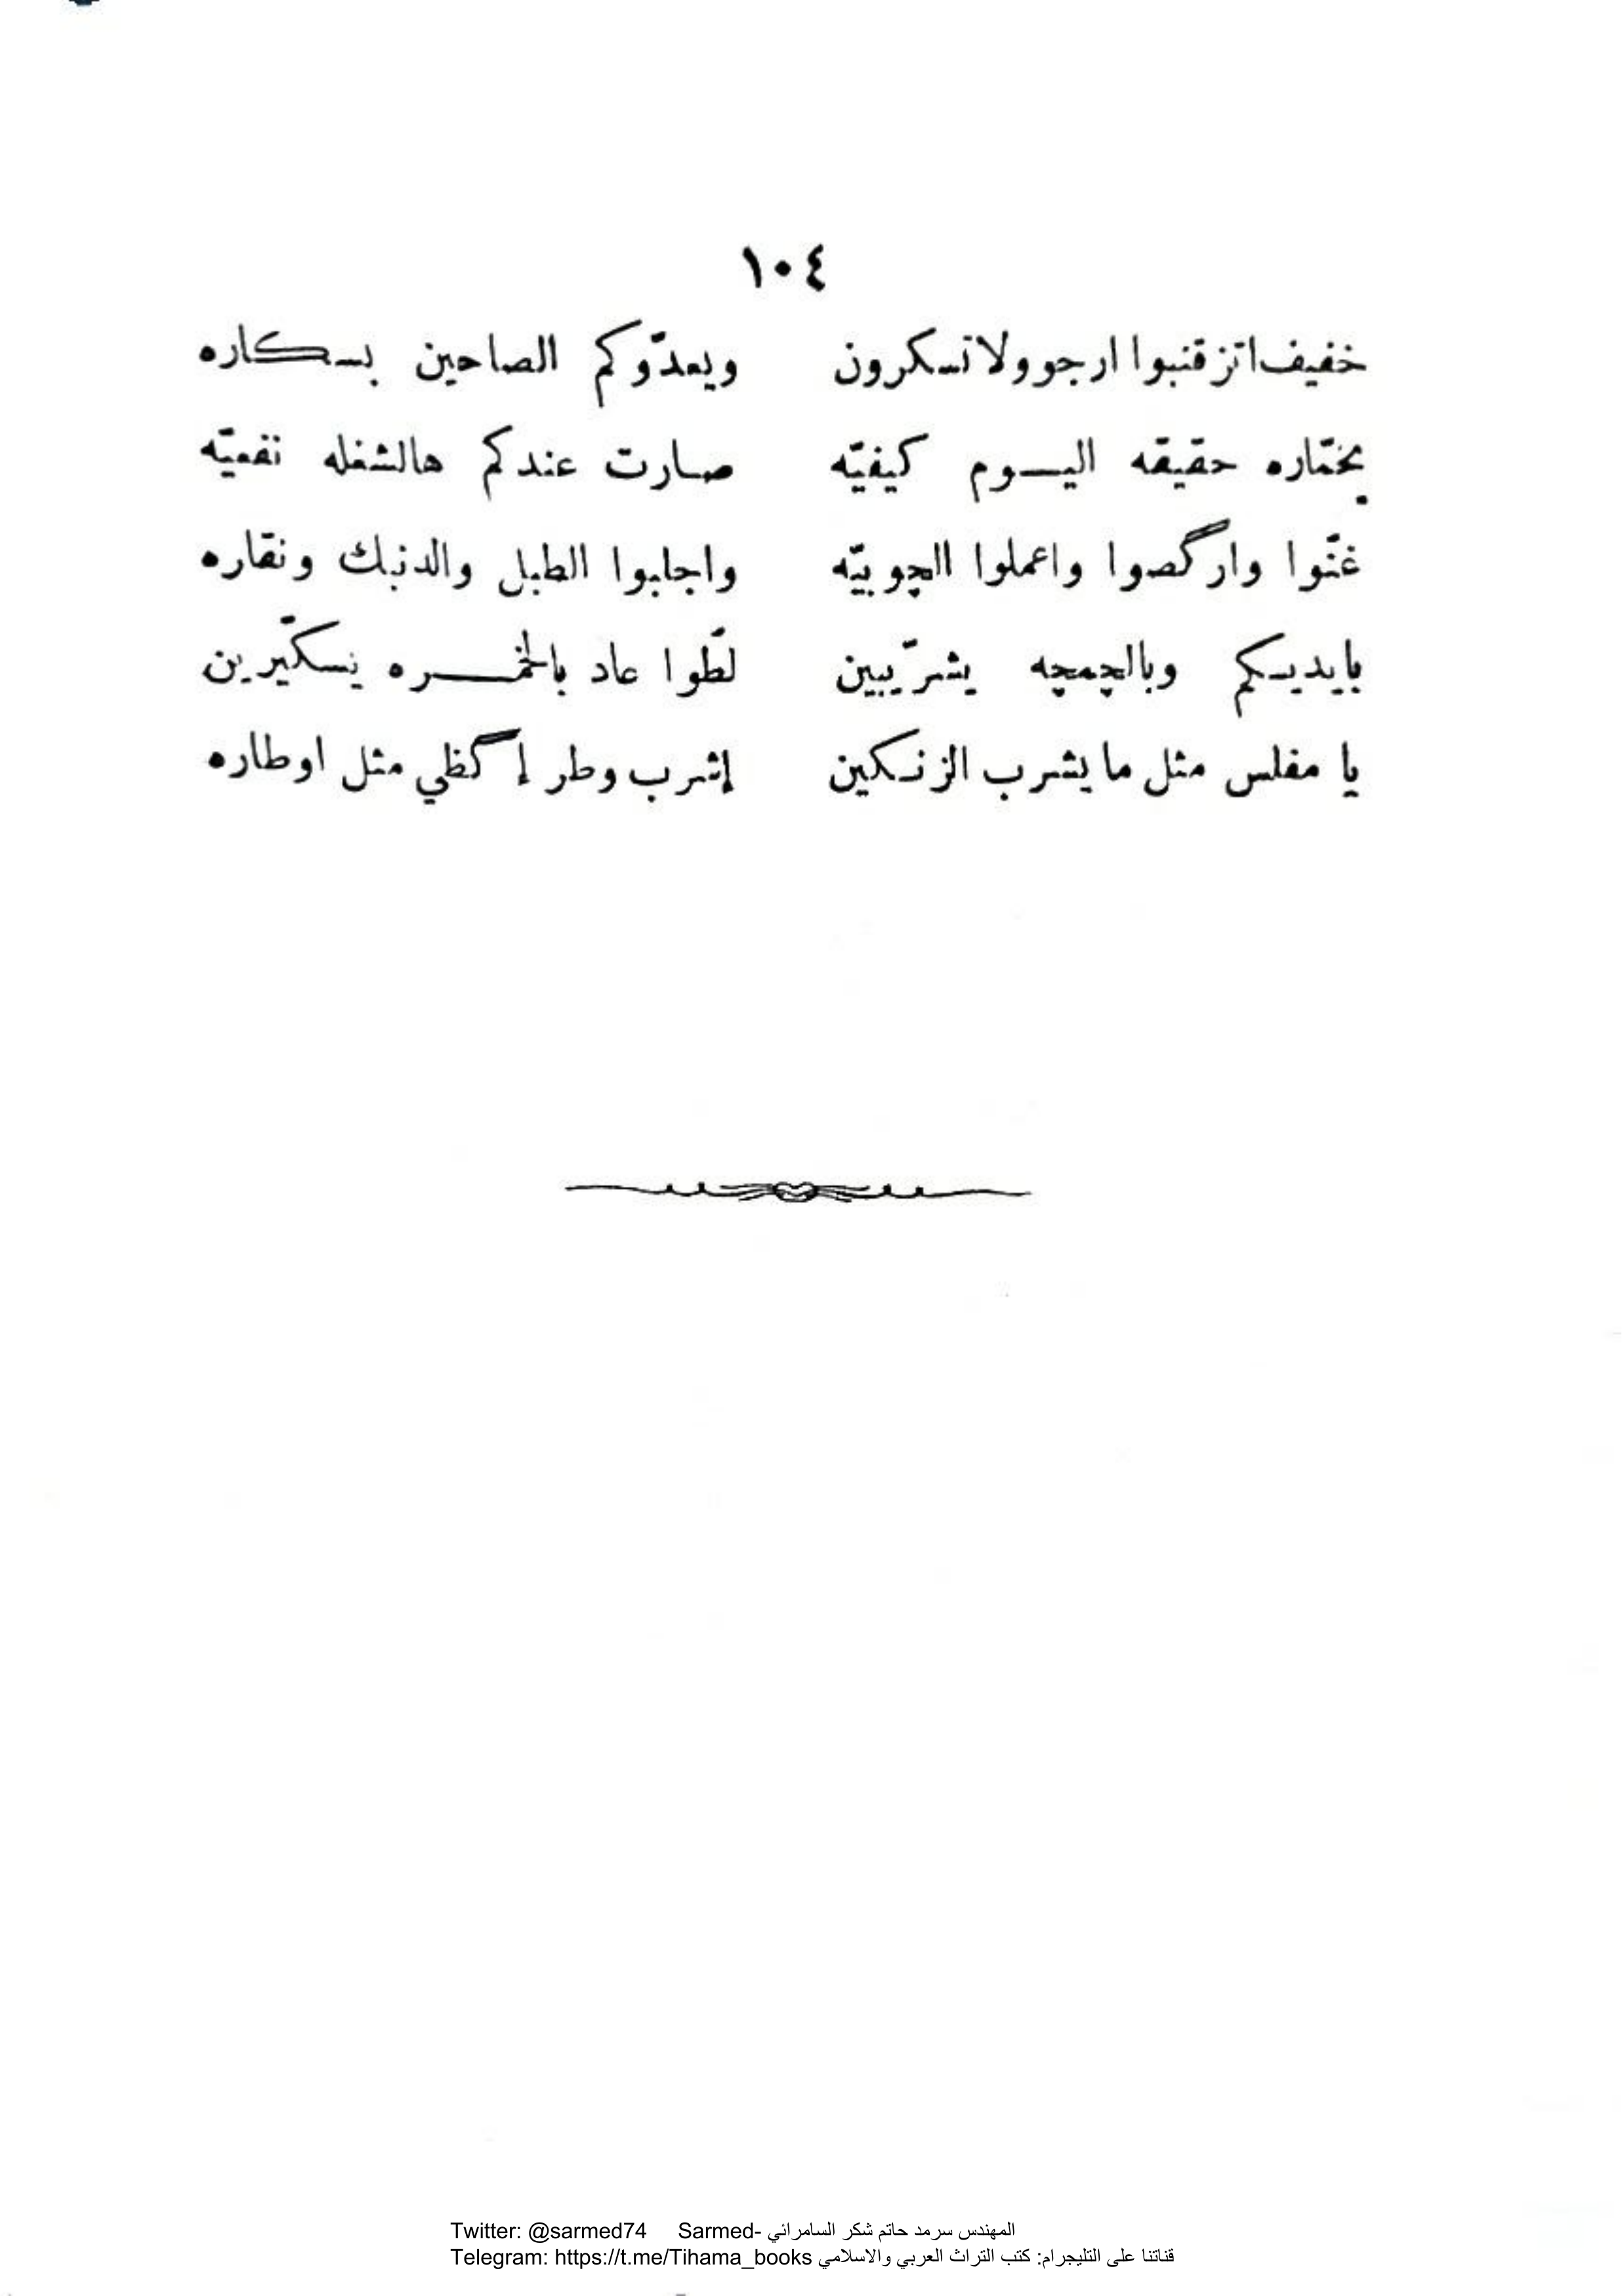 ١٠٤
خفيف اتزقنبوا ارجو ولا تسكرون ويعدّوكم الصاحين بسكاره
يخمّاره حقيقه اليــوم كيفيّه صارت عندكم هالشغله نفعيّه
غنّوا وارگصوا واعملوا الچوبيّه واجابوا الطبل والدنبك ونقاره
بايديكم وبالچمچه يشرّيبين لطّوا عاد بالخمــره يسكّيرين
يا مفلس مثل ما يشرب الزنكين إشرب وطر إگظي مثل اوطاره
Twitter: @sarmed74 Sarmed- المهندس سرمد حاتم شكر السامرائي
Telegram: https://t.me/Tihama_books قناتنا على التليجرام: كتب التراث العربي والاسلامي